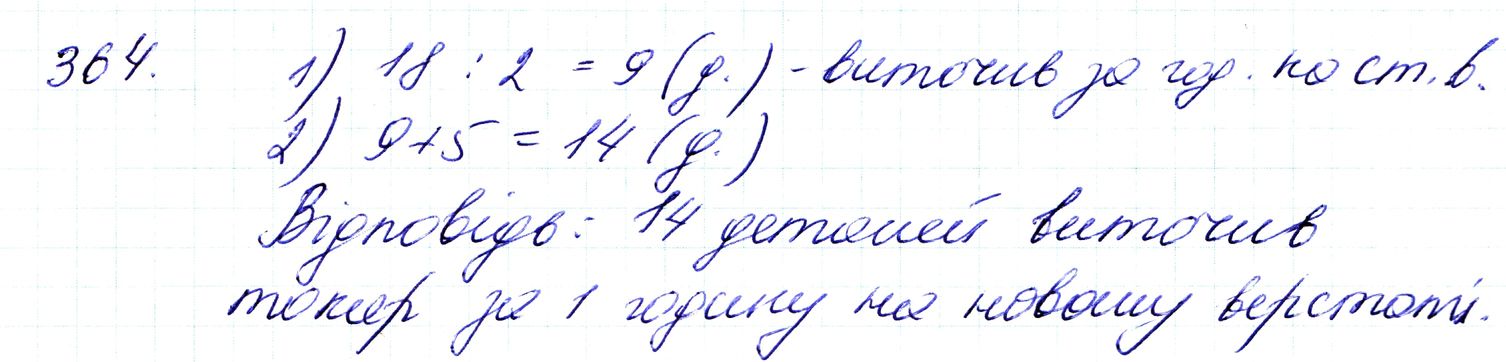 364. 1) 18 : 2 = 9 (д.) - виточив за год. на ст. в.
2) 9+5 = 14 (д.)
Відповідь: 14 деталей виточив
токар за 1 годину на новому верстаті.